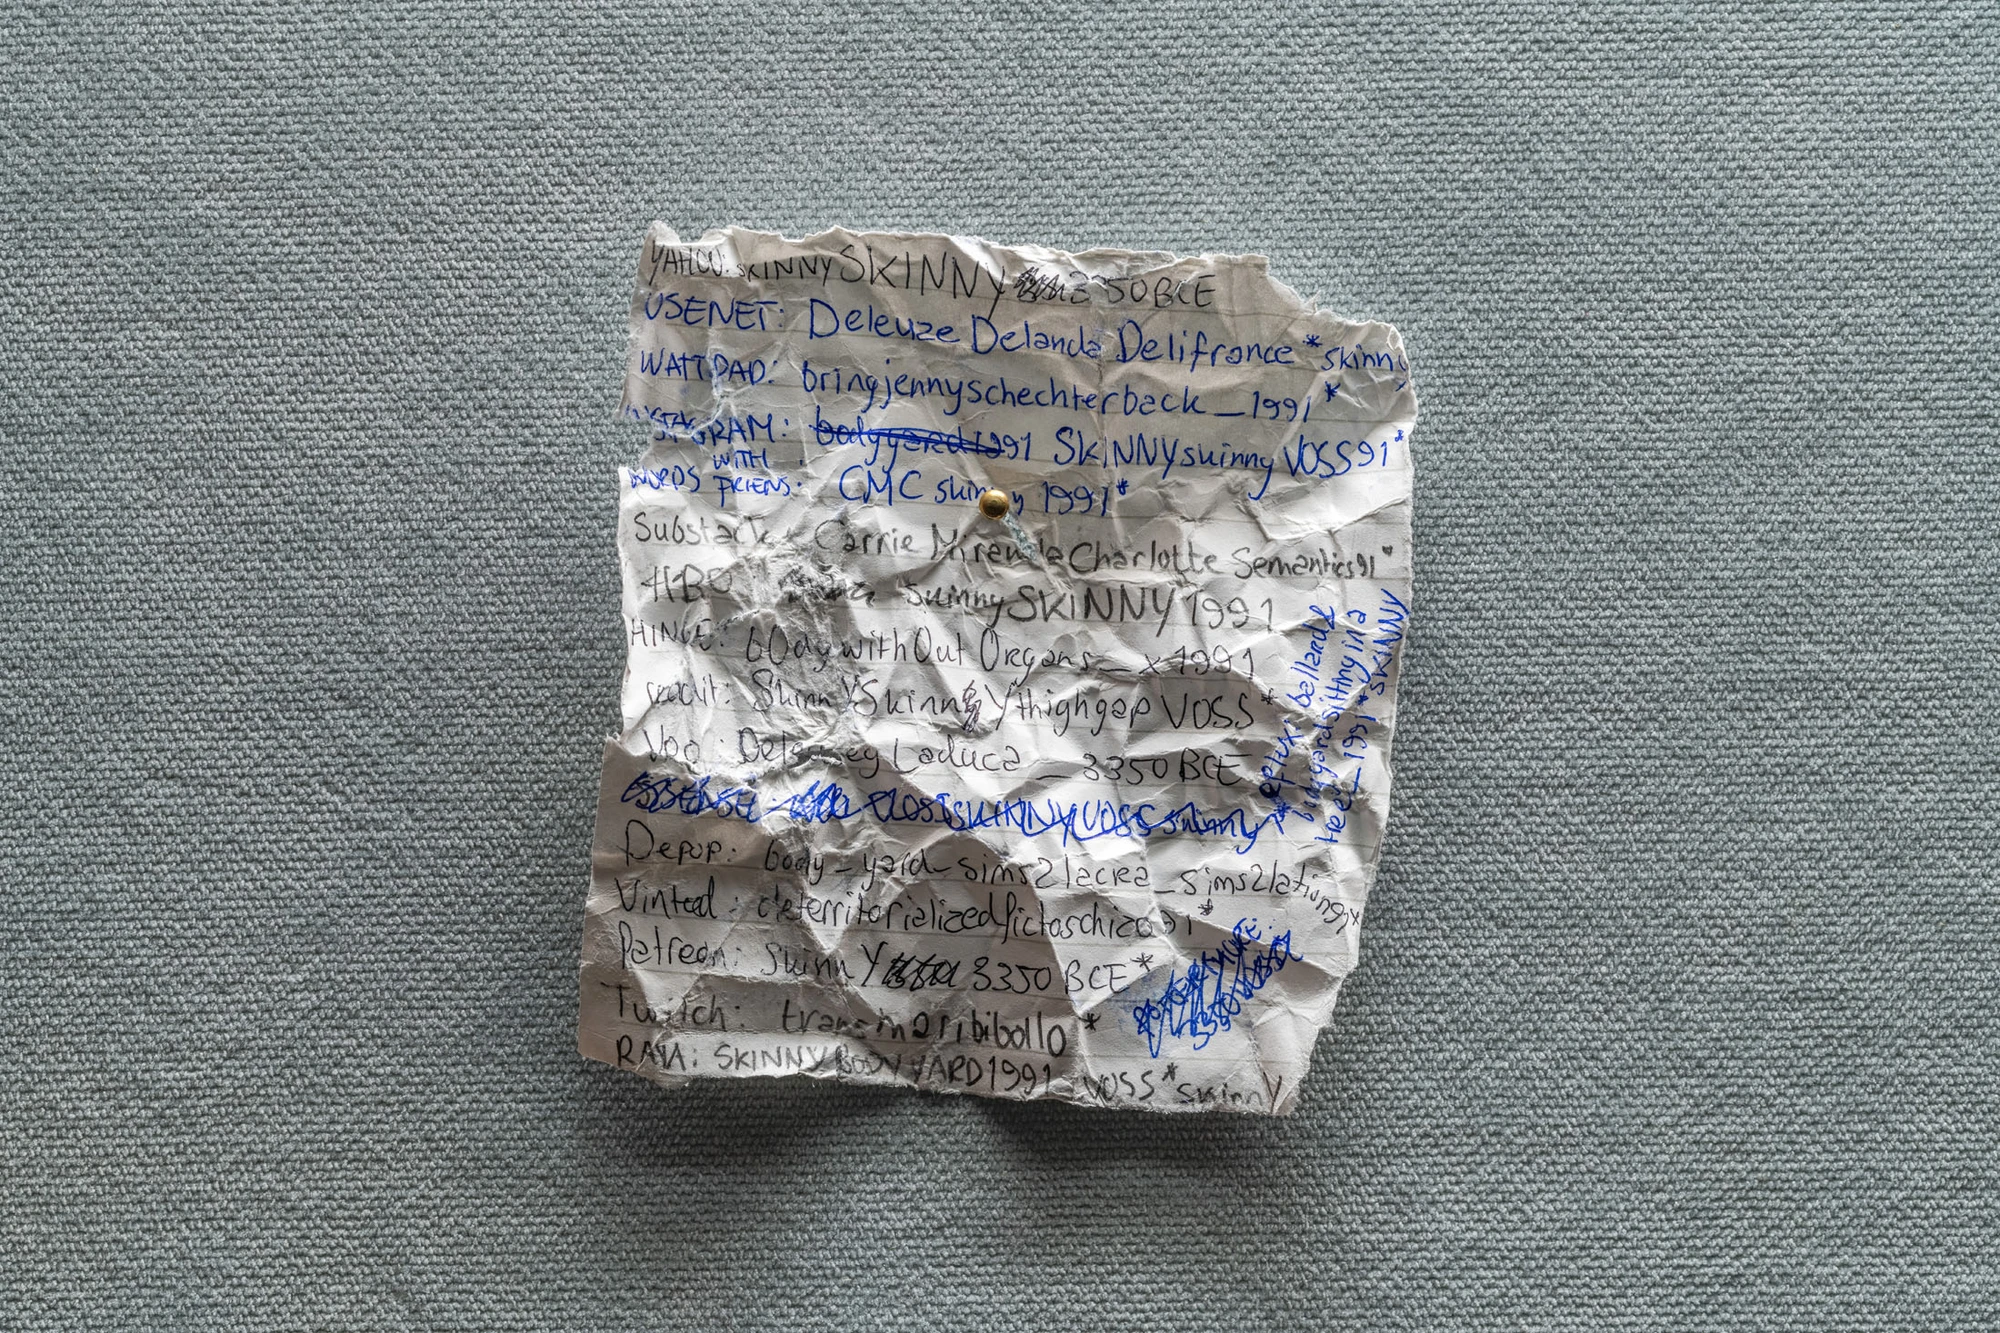 YAHOO: SKINNYSKINNY 3350BCE
USENET: Deleuze Delanda Delifrance *skinny
WATTPAD: bringjennyschechterback_1991*
INSTAGRAM: bodyyard1991 SKINNYskinny VOSS91*
WORDS WITH FRIENS: CMC skinny 1991*
Substack: Carrie Miranda Charlotte Semantics91*
HBO skinnySKINNY1991
HINGE: bOdywithOut Organs_x1991
reddit: SkinnYSkinn YthighgapVOSS*
Laduca_3350BCE
VOSSSKINNYVOSSskinny
Depop: body_yard_sims2lacra_sims2lation91*
Vinted: deterritorializedfictoschizo91*
Patreon: SkinnY 3350BCE*
Twitch: transmaribibollo*
RAYA: SKINNYBODYYARD1991 VOSS*skinnY
bellard&
bodyyardsittingina
tree_1991*
SKINNY